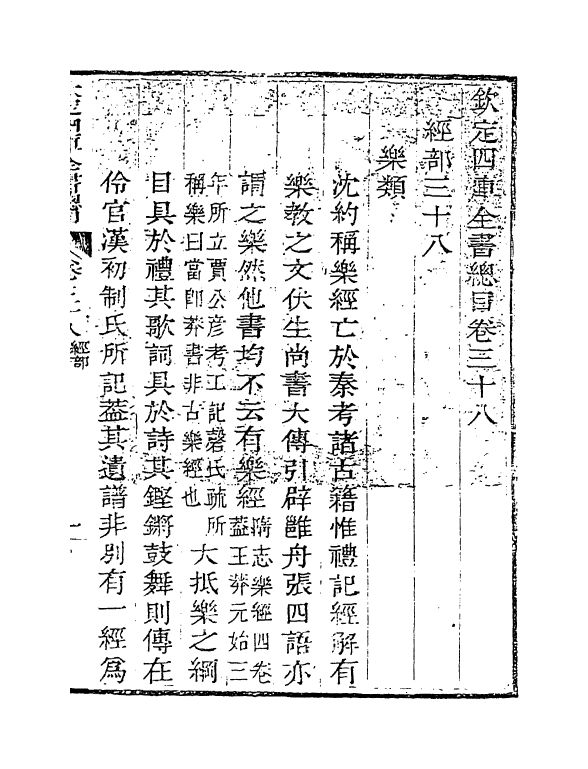 欽定四庫全書總目卷三十八
經部三十八
樂類
沈約稱樂經亡於秦考諸古籍惟禮記經解有
樂教之文伏生尚書大傳引辟雝舟張四語亦
謂之樂然他書均不云有樂經隋志樂經四卷
蓋王莽元始三
年所立賈公彥考工記磬氏疏所
稱樂曰當卽莽書非古樂經也大抵樂之綱
目具於禮其歌詞具於詩其鏗鏘鼓舞則傳在
伶官漢初制氏所記蓋其遺譜非別有一經為
卷三十八
經部
一